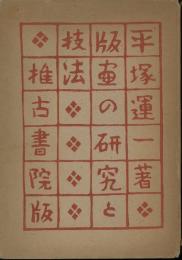 平塚運一著❖
版画の研究と
技法❖❖❖
❖推古書院版